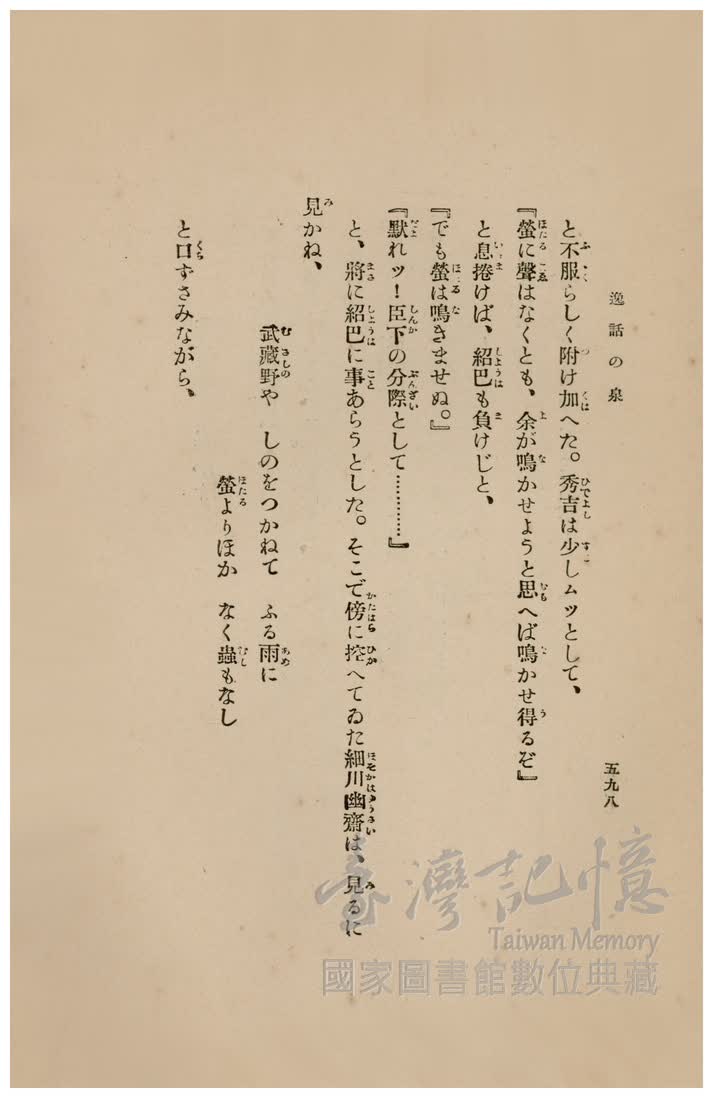 逸話の泉
五九八
と不服らしく附け加へた。秀吉は少しムッとして、
『螢に聲はなくとも、余が鳴かせようと思へば鳴かせ得るぞ』
と息捲けば、紹巴も負けじと、
『でも螢は鳴きませぬ。』
『默れッ！臣下の分際として…………』
と、將に紹巴に事あらうとした。そこで傍に控へてゐた細川幽齋は、見るに
見かね、
武藏野や　しのをつかねて　ふる雨に
螢よりほか　なく蟲もなし
と口ずさみながら、
臺灣記憶
Taiwan Memory
國家圖書館數位典藏